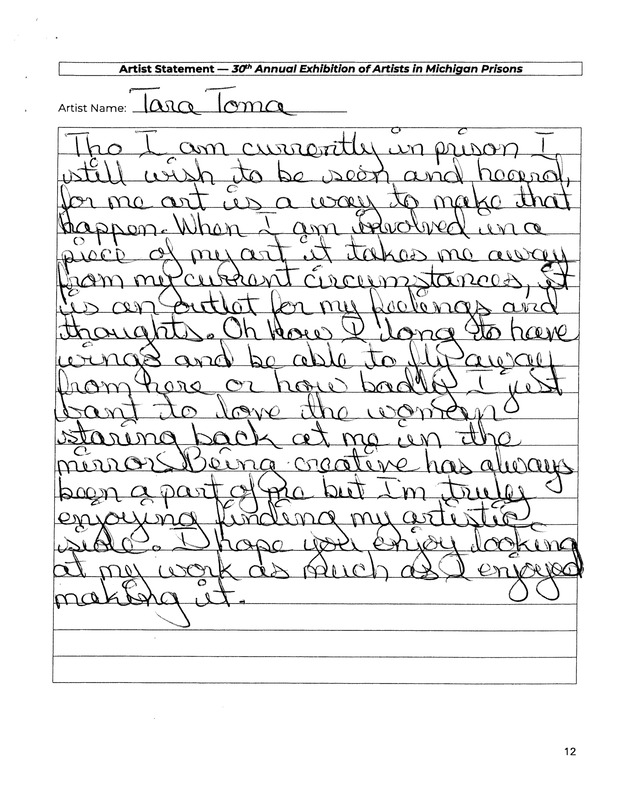 Artist Statement — 30th Annual Exhibition of Artists in Michigan Prisons
Artist Name: Tara Toma
Tho I am currently in prison I
still wish to be seen and heard,
for me art is a way to make that
happen. When I am involved in a
piece of my art it takes me away
from my current circumstances, it
is an outlet for my feelings and
thoughts. Oh how I long to have
wings and be able to fly away
from here or how badly I just
want to love the woman
staring back at me in the
mirror. Being creative has always
been a part of me but I'm truly
enjoying finding my artistic
side. I hope you enjoy looking
at my work as much as I enjoyed
making it.
12